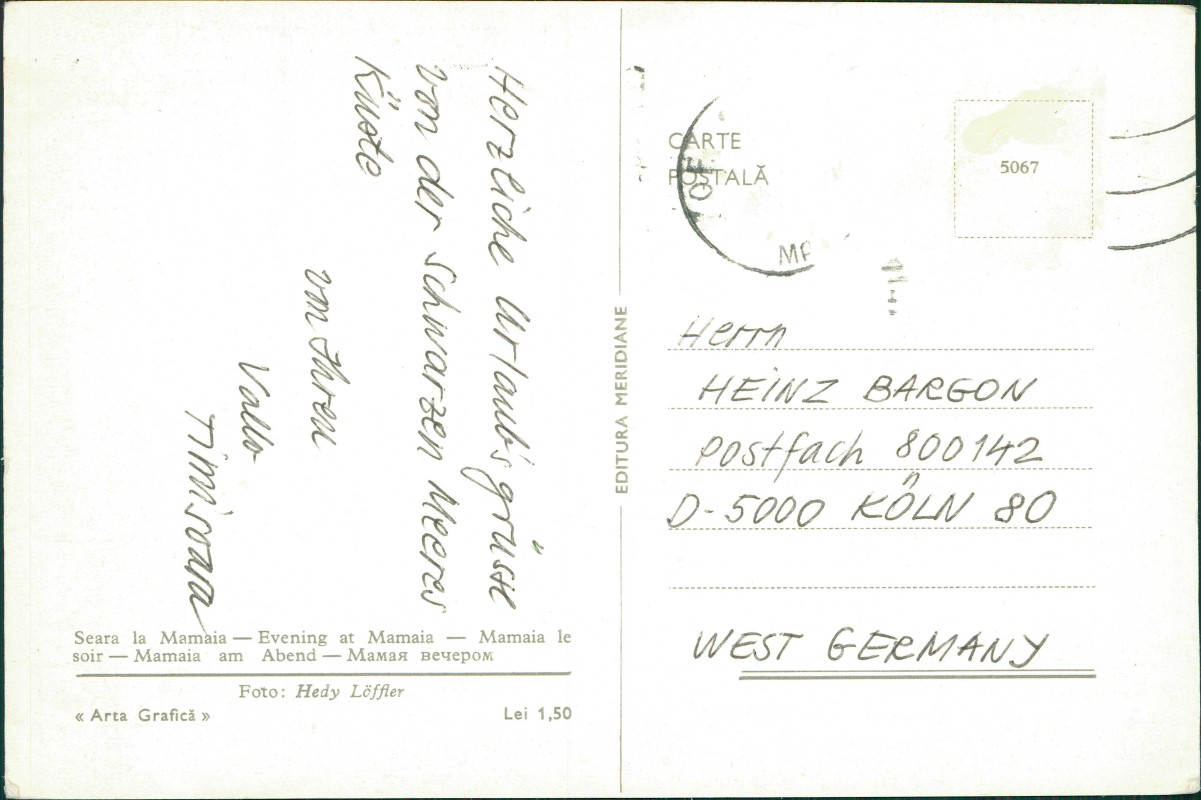 Herzliche Urlaub's grüsse
von der schwarzen Meeres
Küste
von Ihren
Vallo
Timisoara
Seara la Mamaia — Evening at Mamaia — Mamaia le
soir — Mamaia am Abend — Мамая вечером
Foto: Hedy Löffler
« Arta Grafică »
Lei 1,50
EDITURA MERIDIANE
CARTE
POSTALĂ
5067
Herrn
HEINZ BARGON
Postfach 800142
D-5000 KÖLN 80
WEST GERMANY